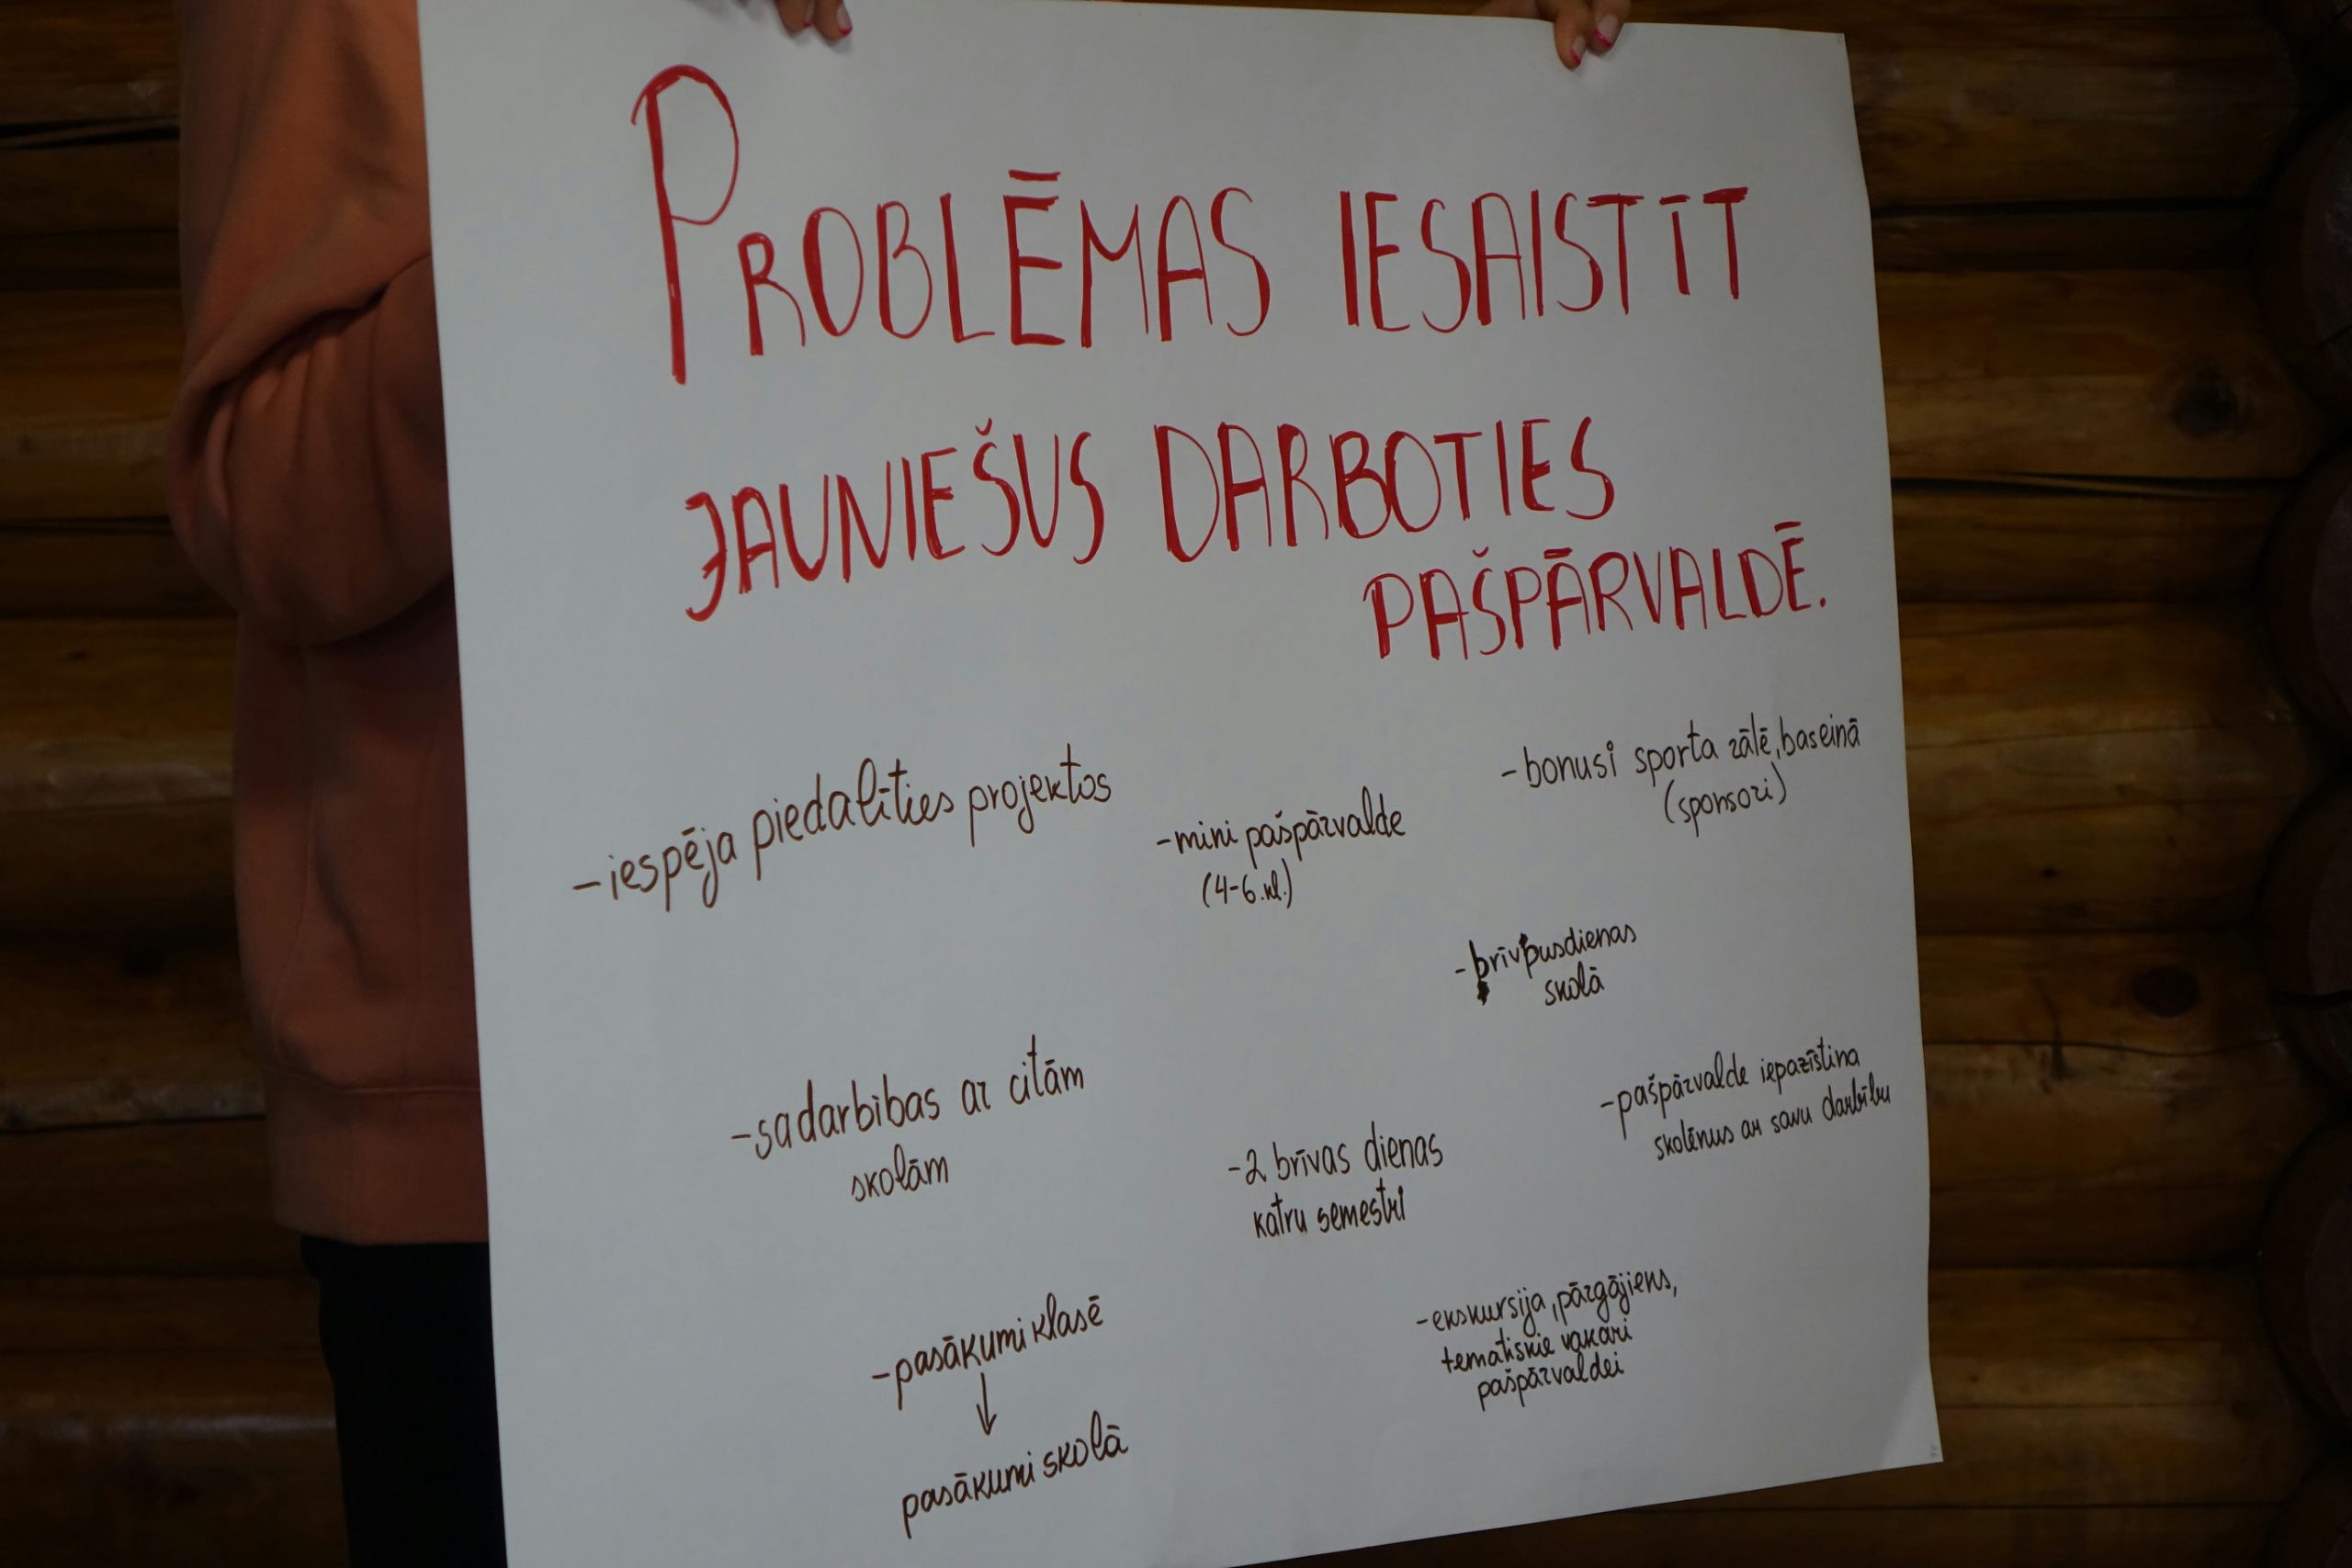 PROBLĒMAS IESAISTĪT
JAUNIEŠUS DARBOTIES
PAŠPĀRVALDĒ.
-iespēja piedalīties projektos
-mini pašpārvalde
(4-6.kl.)
-bonusi sporta zālē, baseinā
(sponsori)
-brīvpusdienas
skolā
-sadarbības ar citām
skolām
-2 brīvas dienas
katru semestri
-pašpārvalde iepazīstina
skolēnus ar savu darbību
-pasākumi klasē
↓
pasākumi skolā
-ekskursija, pārgājiens,
tematiskie vakari
pašpārvaldei